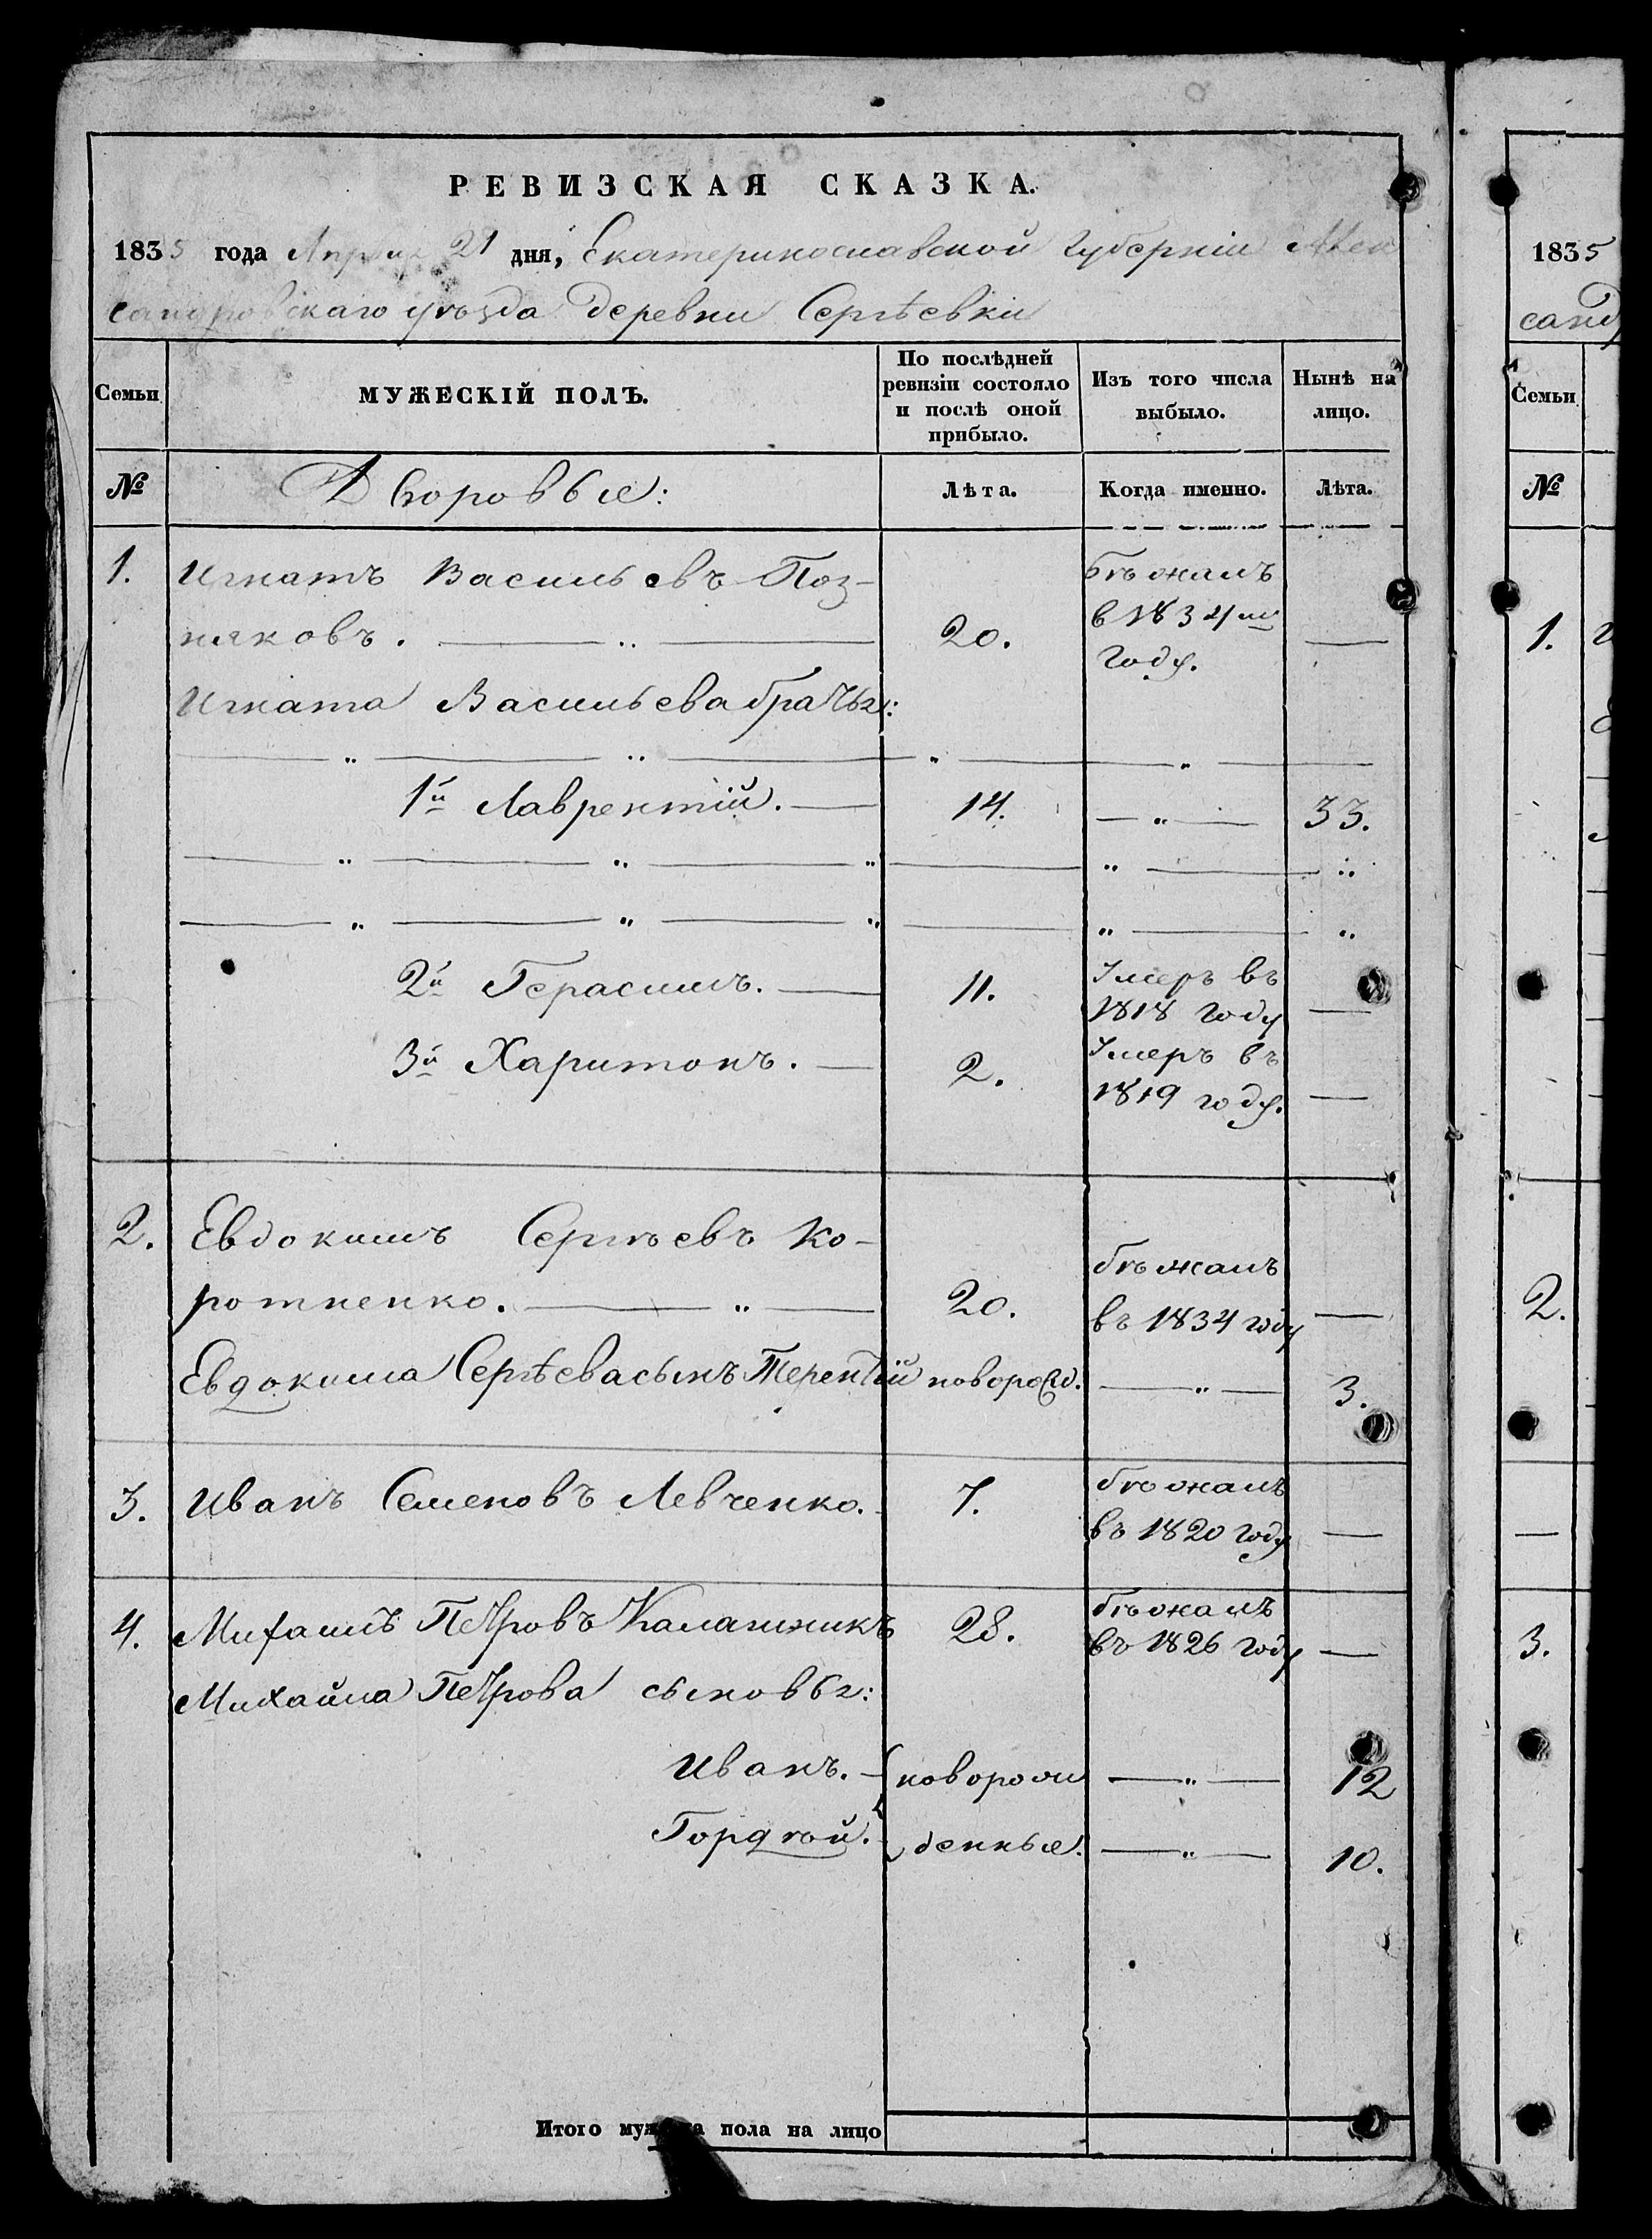 РЕВИЗСКАЯ СКАЗКА.
1835 года Апреля 21 дня, Екатеринославской губерніи Алек
сандровскаго уѣзда деревни Сергѣевки
Семьи
МУЖЕСКІЙ ПОЛЪ.
По послѣдней ревизіи состояло и послѣ оной прибыло.
Изъ того числа выбыло.
Нынѣ на лицо.
№ Дворовые: Лѣта. Когда именно. Лѣта.
1. Игнатъ Васильевъ Поз- бѣжалъ
няковъ. — „ — 20. в 1834м —
году.
Игната Васильева братья:
— „ — „ — „ — „ —
1й Лаврентій. — 14. — „ — 33.
— „ — „ — „ — „ — „
— „ — „ — „ — „ — „
2й Герасимъ. — 11. Умеръ въ
1818 году —
3й Харитонъ. — 2. Умеръ въ
1819 году. —
2. Евдокимъ Сергѣевъ Ко-
ротненко. — „ — 20. бѣжалъ
въ 1834 году —
Евдокима Сергѣева сынъ Терентій новорожд. — „ — 3.
3. Иванъ Семеновъ Левченко. 7. бѣжалъ
въ 1820 году —
4. Михаилъ Петровъ Калашникъ 28. бѣжалъ
въ 1826 году —
Михайла Петрова сыновья:
Иванъ. — новорож — „ — 12
Гордѣй. денные. — „ — 10.
Итого муж пола на лицо
1835
санд
Семьи
№
1.
2.
—
3.